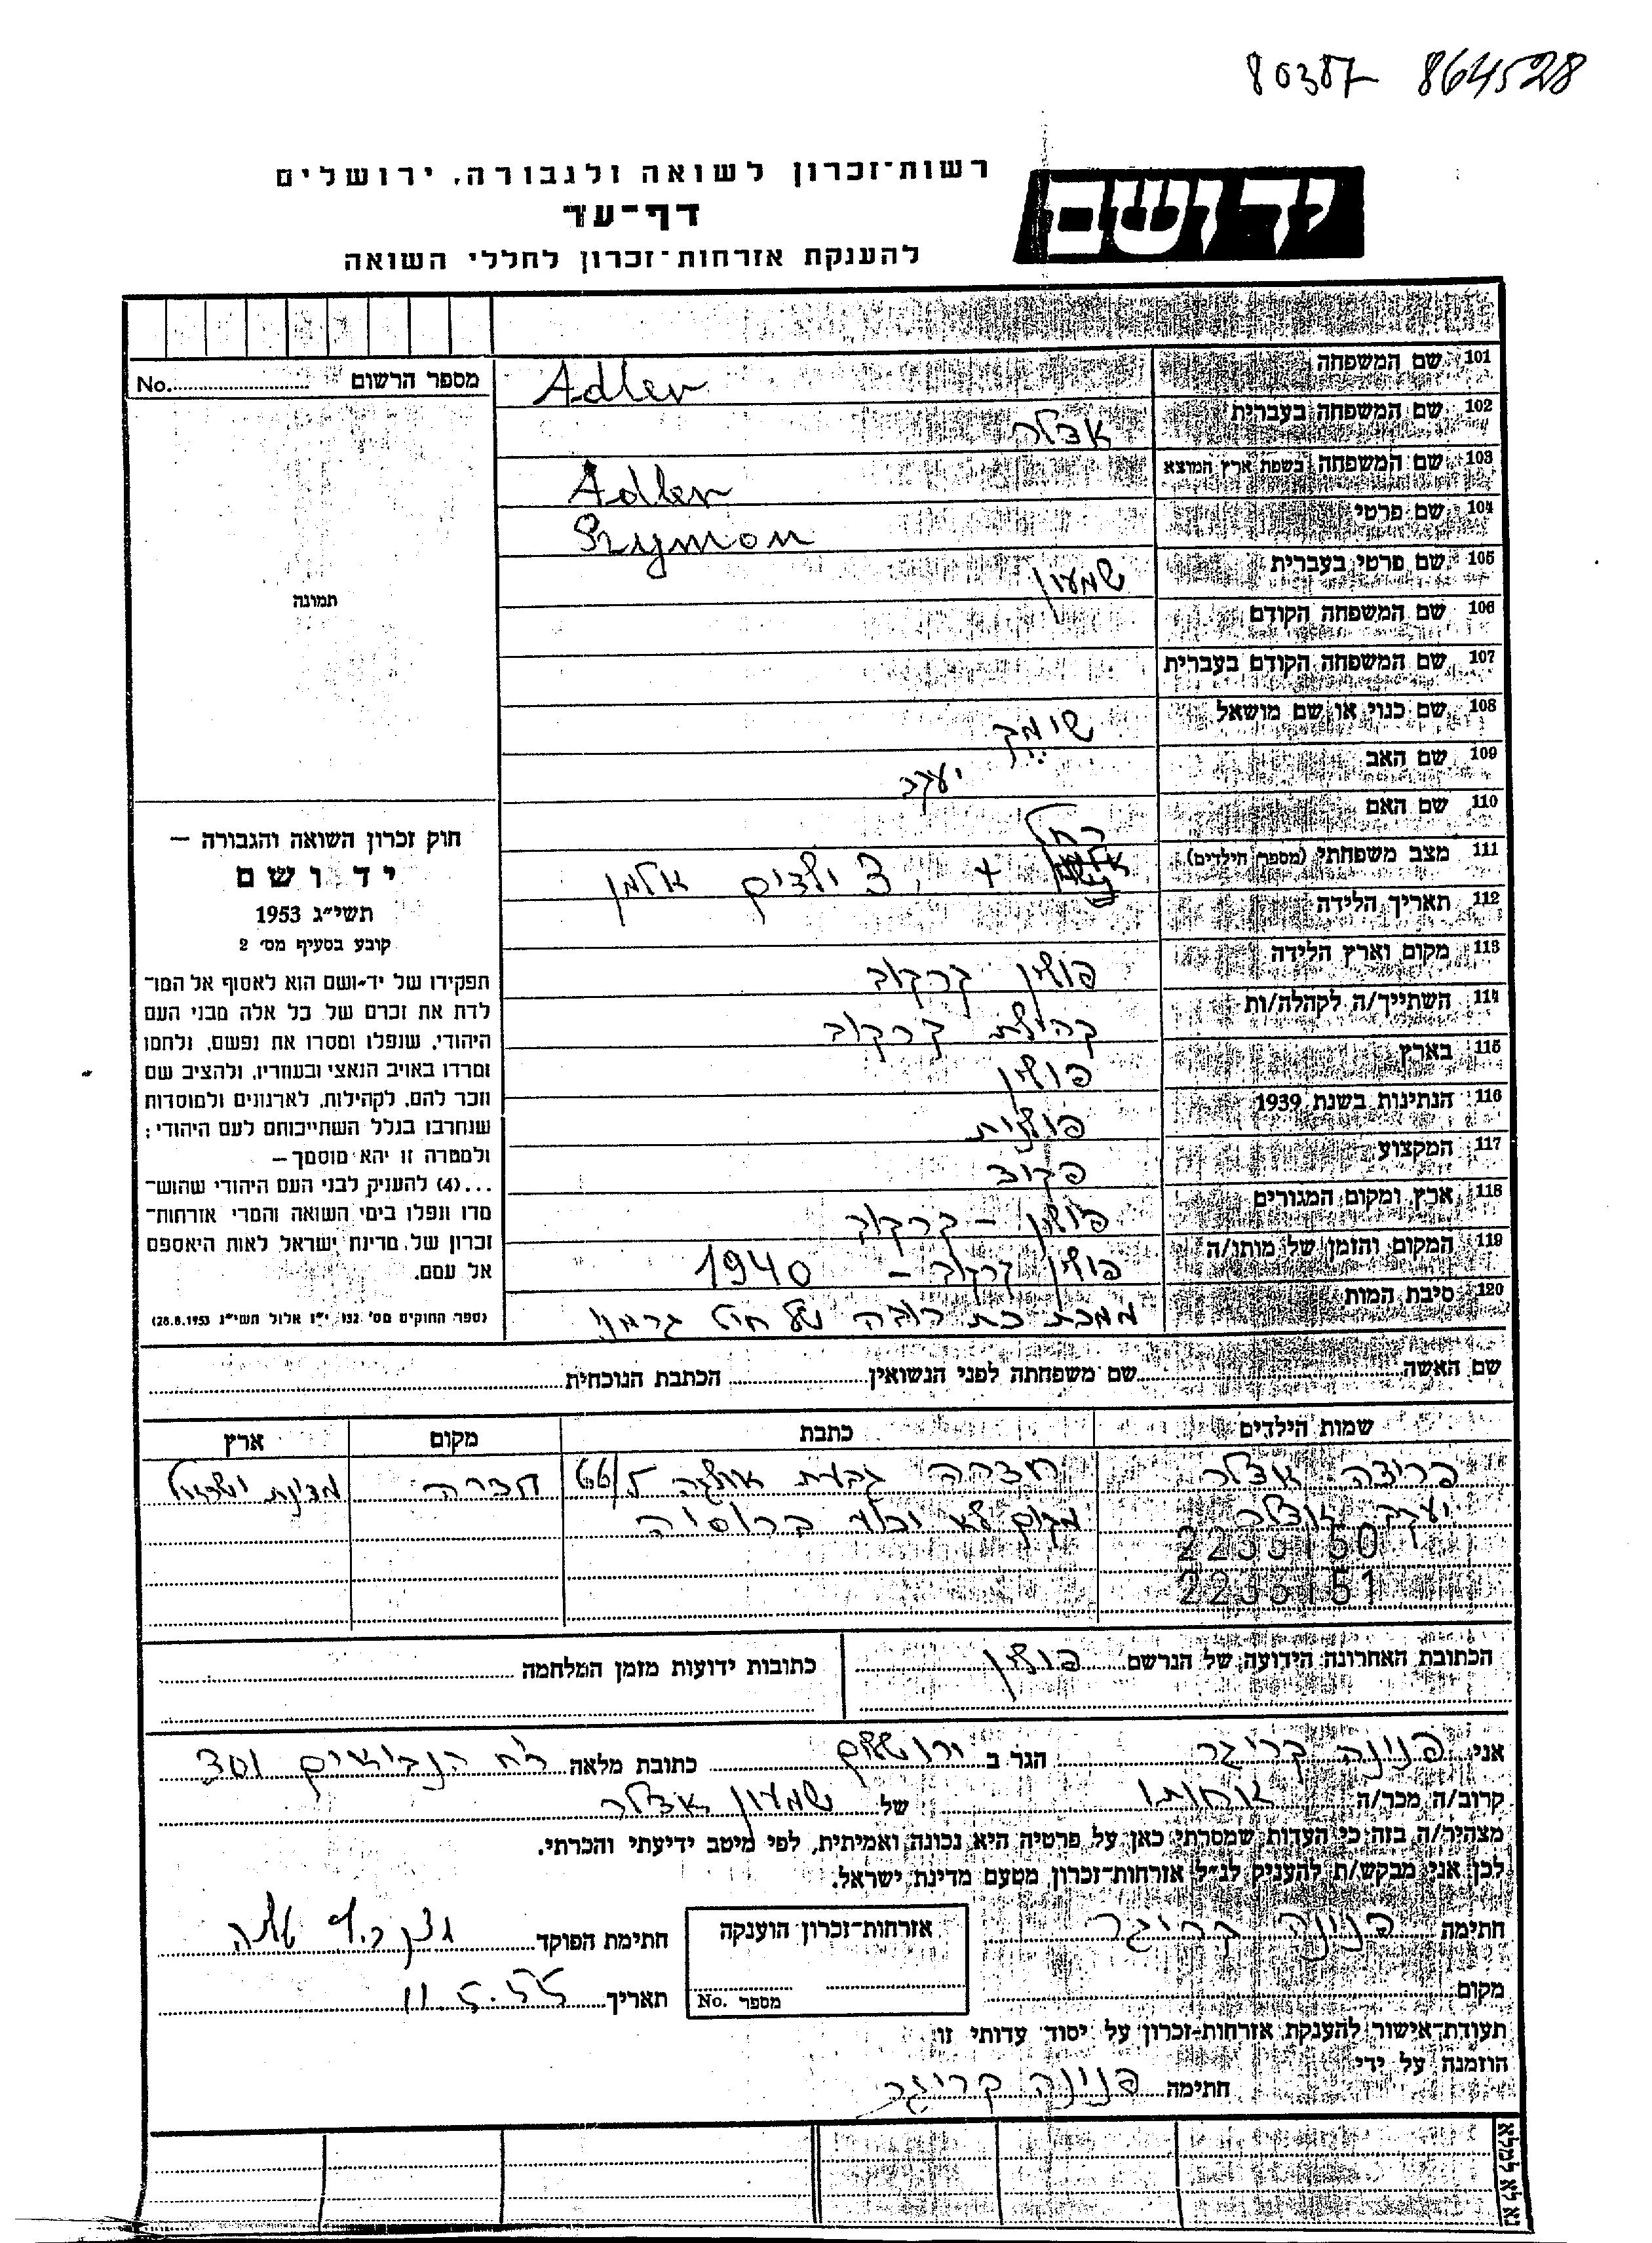 80387 864528
יד ושם
רשות־זכרון לשואה ולגבורה, ירושלים
דף־עד
להענקת אזרחות־זכרון לחללי השואה
מספר הרשום No.
תמונה
101 שם המשפחה Adler
102 שם המשפחה בעברית אדלר
103 שם המשפחה בשפת ארץ המוצא Adler
104 שם פרטי Szymon
105 שם פרטי בעברית שמעון
106 שם המשפחה הקודם
107 שם המשפחה הקודם בעברית
108 שם כנוי או שם מושאל שימק
109 שם האב יעקב
110 שם האם רחל
111 מצב משפחתי (מספר הילדים) + 3 ילדים אלמן
112 תאריך הלידה
113 מקום וארץ הלידה פולין קרקוב
114 השתייך/ה לקהלה/ות קהילת קרקוב
115 בארץ פולין
116 הנתינות בשנת 1939 פולנית
117 המקצוע
118 ארץ ומקום המגורים פולין – קרקוב
119 המקום והזמן של מותו/ה פולין קרקוב – 1940
120 סיבת המות ממכת כת רובה של חיל גרמני
חוק זכרון השואה והגבורה –
יד ושם
תשי״ג 1953
קובע בסעיף מס׳ 2
תפקידו של יד־ושם הוא לאסוף אל המו־
לדת את זכרם של כל אלה מבני העם
היהודי, שנפלו ומסרו את נפשם, נלחמו
ומרדו באויב הנאצי ובעוזריו, ולהציב שם
וזכר להם, לקהילות, לארגונים ולמוסדות
שנחרבו בגלל השתייכותם לעם היהודי;
ולמטרה זו יהא מוסמך –
...(4) להעניק לבני העם היהודי שהוש־
מדו ונפלו בימי השואה והמרי אזרחות־
זכרון של מדינת ישראל לאות היאספם
אל עמם.
(ספר החוקים מס׳ 132, י״ז אלול תשי״ג 28.8.1953)
שם האשה שם משפחתה לפני הנשואין הכתבת הנוכחית
שמות הילדים כתבת מקום ארץ
אדלר חדרה גבעת אולגה 66/5 חדרה מדינת ישראל
יעקב אדלר מקום לא ידוע ברוסיה
2235150
2235151
הכתובת האחרונה הידועה של הנרשם פולין כתובות ידועות מזמן המלחמה
אני פנינה קריגר הגר ב ירושלים כתובת מלאה רח הנביאים
קרוב/ה מכר/ה אחותו של שמעון אדלר
מצהיר/ה בזה כי העדות שמסרתי כאן על פרטיה היא נכונה ואמיתית, לפי מיטב ידיעתי והכרתי.
לכן אני מבקש/ת להעניק לנ״ל אזרחות־זכרון מטעם מדינת ישראל.
חתימה פנינה קריגר אזרחות־זכרון הוענקה חתימת הפוקד
מקום מספר No. תאריך 11.5.55
תעודת־אישור להענקת אזרחות־זכרון על יסוד עדותי זו
הוזמנה על ידי
חתימה פנינה קריגר
נא לא למלא